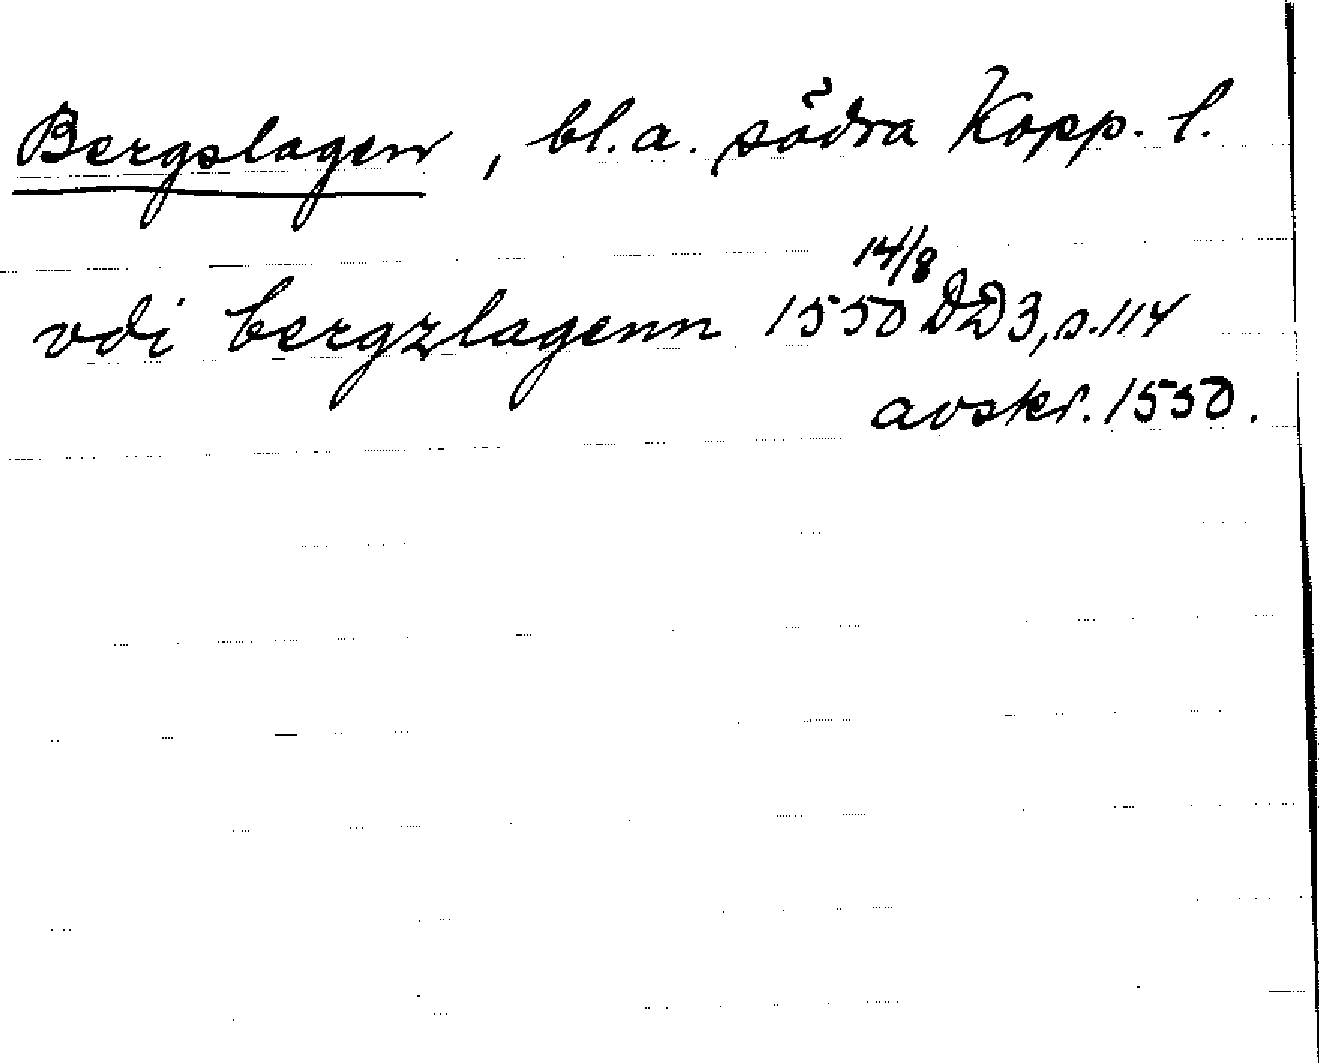 Bergslagen, bl.a. södra Kopp. l.
vdi bergzlagenn 1550 14/8 DD3, s.114
avskr. 1550.